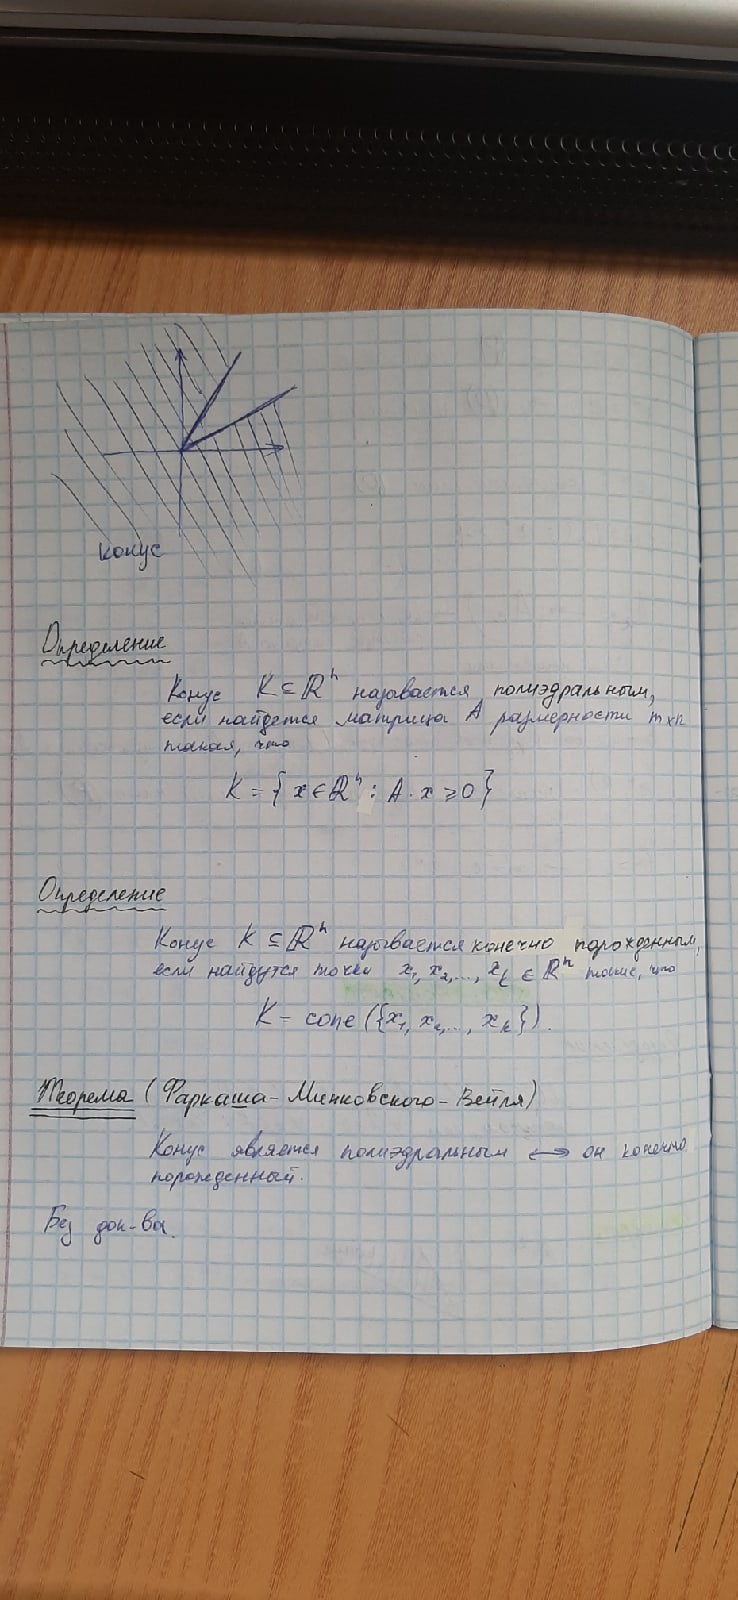 конус
Определение
Конус K ⊆ ℝⁿ называется полиэдральным,
если найдется матрица A размерности m×n
такая, что
K = { x ∈ ℝⁿ : A · x ⩾ 0 }
Определение
Конус K ⊆ ℝⁿ называется конечно порожденным,
если найдутся точки x₁, x₂, ..., xₖ ∈ ℝⁿ такие, что
K = cone ({x₁, x₂, ..., xₖ}).
Теорема (Фаркаша-Минковского-Вейля)
Конус является полиэдральным ⟷ он конечно
порожденный.
Без док-ва.